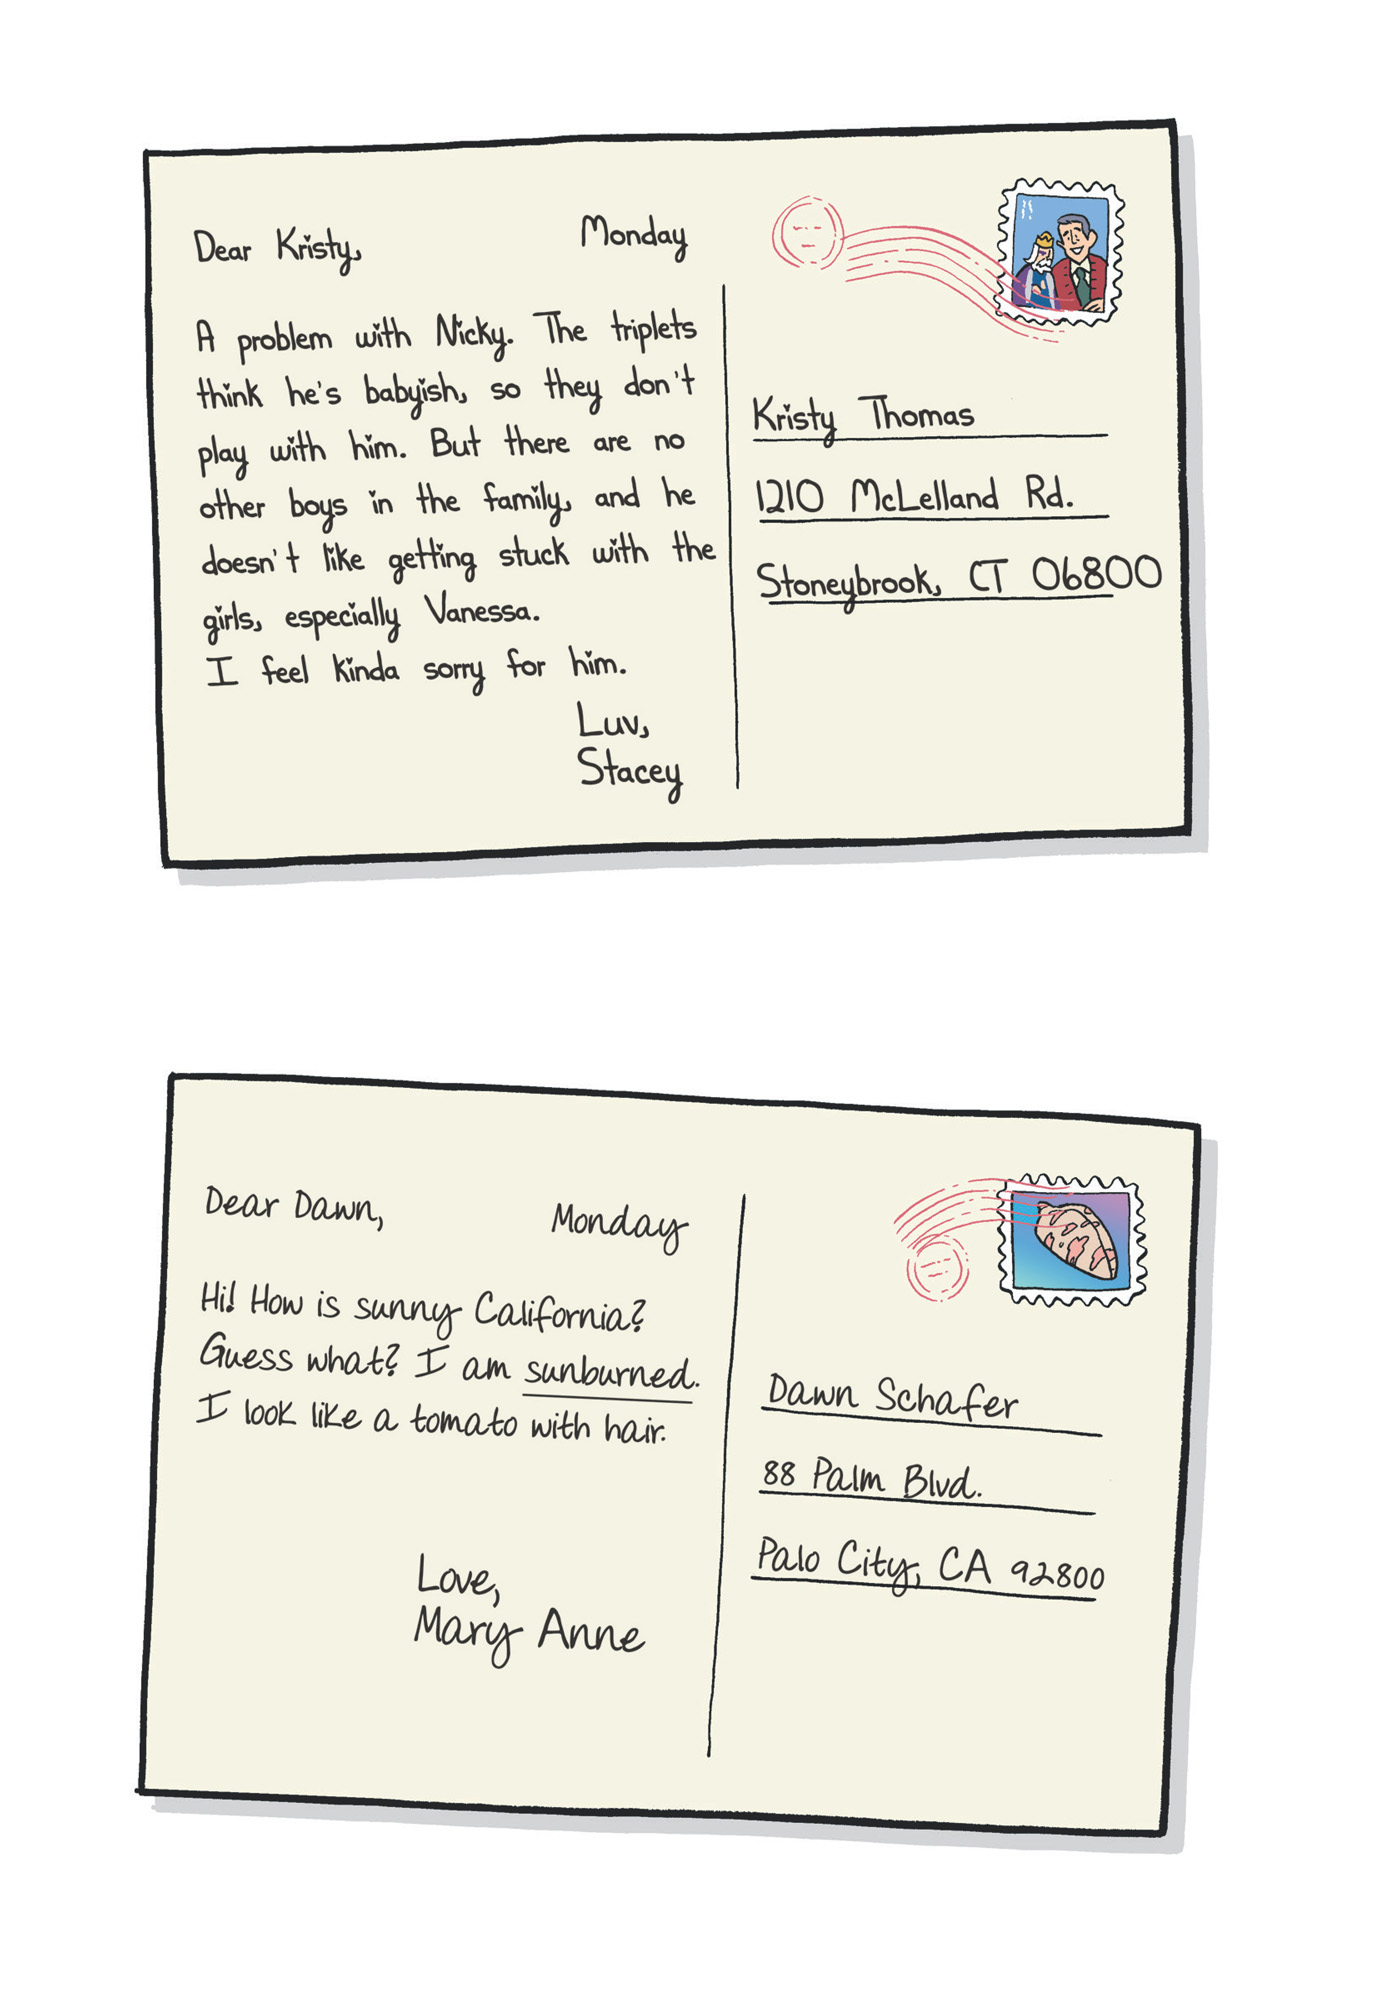 Dear Kristy,
Monday
A problem with Nicky. The triplets
think he's babyish, so they don't
play with him. But there are no
other boys in the family, and he
doesn't like getting stuck with the
girls, especially Vanessa.
I feel kinda sorry for him.
Luv,
Stacey
Kristy Thomas
1210 McLelland Rd.
Stoneybrook, CT 06800
Dear Dawn,
Monday
Hi! How is sunny California?
Guess what? I am sunburned.
I look like a tomato with hair.
Love,
Mary Anne
Dawn Schafer
88 Palm Blvd.
Palo City, CA 92800